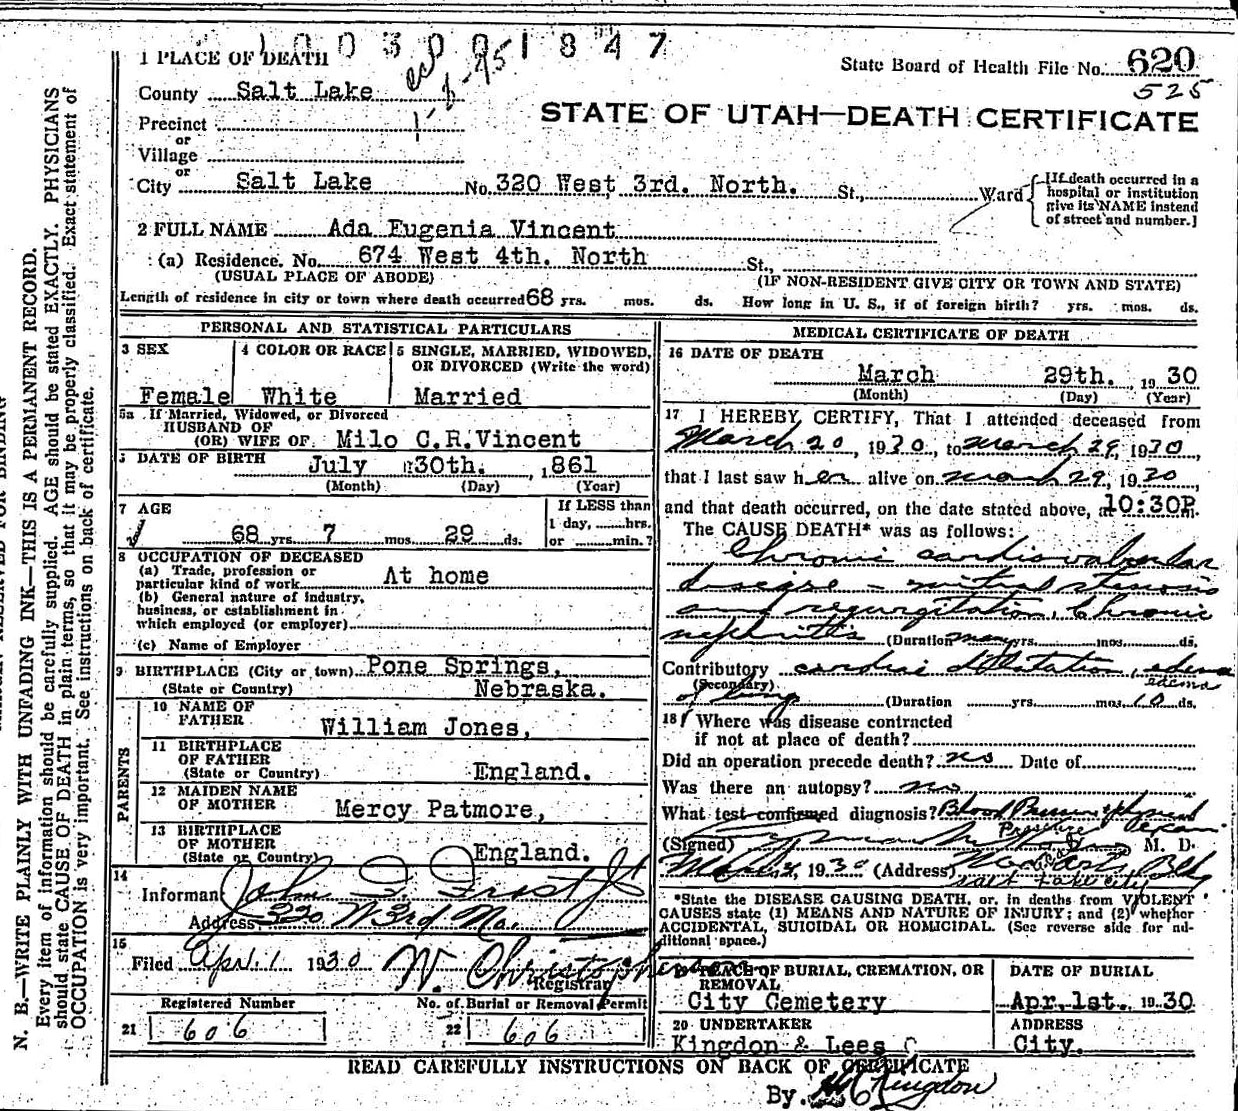 1003001847
1 PLACE OF DEATH
State Board of Health File No. 620
525
County Salt Lake
STATE OF UTAH—DEATH CERTIFICATE
Precinct
or
Village
or
City Salt Lake No. 320 West 3rd. North. St., Ward
[If death occurred in a
hospital or institution
give its NAME instead
of street and number.]
2 FULL NAME Ada Eugenia Vincent
(a) Residence. No. 674 West 4th. North St.,
(USUAL PLACE OF ABODE) (IF NON-RESIDENT GIVE CITY OR TOWN AND STATE)
Length of residence in city or town where death occurred 68 yrs. mos. ds. How long in U. S., if of foreign birth? yrs. mos. ds.
PERSONAL AND STATISTICAL PARTICULARS
3 SEX
Female
4 COLOR OR RACE
White
5 SINGLE, MARRIED, WIDOWED,
OR DIVORCED (Write the word)
Married
5a If Married, Widowed, or Divorced
HUSBAND OF
(OR) WIFE OF Milo C.R.Vincent
DATE OF BIRTH July 30th. ,1861
(Month) (Day) (Year)
7 AGE
68 yrs. 7 mos. 29 ds.
If LESS than
1 day, hrs.
or min.?
8 OCCUPATION OF DECEASED
(a) Trade, profession or
particular kind of work At home
(b) General nature of industry,
business, or establishment in
which employed (or employer)
(c) Name of Employer
9 BIRTHPLACE (City or town) Pone Springs,
(State or Country) Nebraska.
PARENTS
10 NAME OF
FATHER William Jones,
11 BIRTHPLACE
OF FATHER
(State or Country) England.
12 MAIDEN NAME
OF MOTHER Mercy Patmore,
13 BIRTHPLACE
OF MOTHER
(State or Country) England.
14
Informant John F Frost Jr
Address 320 W 3rd No.
15
Filed Apr. 1 1930 W. Christopherson
Registrar
Registered Number
21 606
No. of Burial or Removal Permit
22 606
MEDICAL CERTIFICATE OF DEATH
16 DATE OF DEATH
March 29th. 1930
(Month) (Day) (Year)
17 I HEREBY CERTIFY, That I attended deceased from
March 20, 1930, to March 29, 1930,
that I last saw her alive on March 29, 1930,
and that death occurred, on the date stated above, at 10:30P m.
The CAUSE DEATH* was as follows:
Chronic cardiovalvular
disease - mitral stenosis
and regurgitation. Chronic
nephritis (Duration many yrs. mos. ds.
Contributory cardiac dilatation, edema
(Secondary) edema
of lung (Duration yrs. mos. 10 ds.
18 Where was disease contracted
if not at place of death?
Did an operation precede death? no Date of
Was there an autopsy? no
What test confirmed diagnosis? Blood Pressure & physical
Pressure exam
(Signed) M. D.
1930 (Address) Bldg
Salt Lake City
*State the DISEASE CAUSING DEATH, or, in deaths from VIOLENT
CAUSES state (1) MEANS AND NATURE OF INJURY; and (2) whether
ACCIDENTAL, SUICIDAL OR HOMICIDAL. (See reverse side for ad-
ditional space.)
19 PLACE OF BURIAL, CREMATION, OR
REMOVAL
City Cemetery
DATE OF BURIAL
Apr, 1st. 1930
20 UNDERTAKER
Kingdon & Lees
ADDRESS
City.
READ CAREFULLY INSTRUCTIONS ON BACK OF CERTIFICATE
By. Kingdon
N. B.—WRITE PLAINLY WITH UNFADING INK—THIS IS A PERMANENT RECORD.
Every item of information should be carefully supplied. AGE should be stated EXACTLY. PHYSICIANS
should state CAUSE OF DEATH in plain terms, so that it may be properly classified. Exact statement of
OCCUPATION is very important. See instructions on back of certificate.